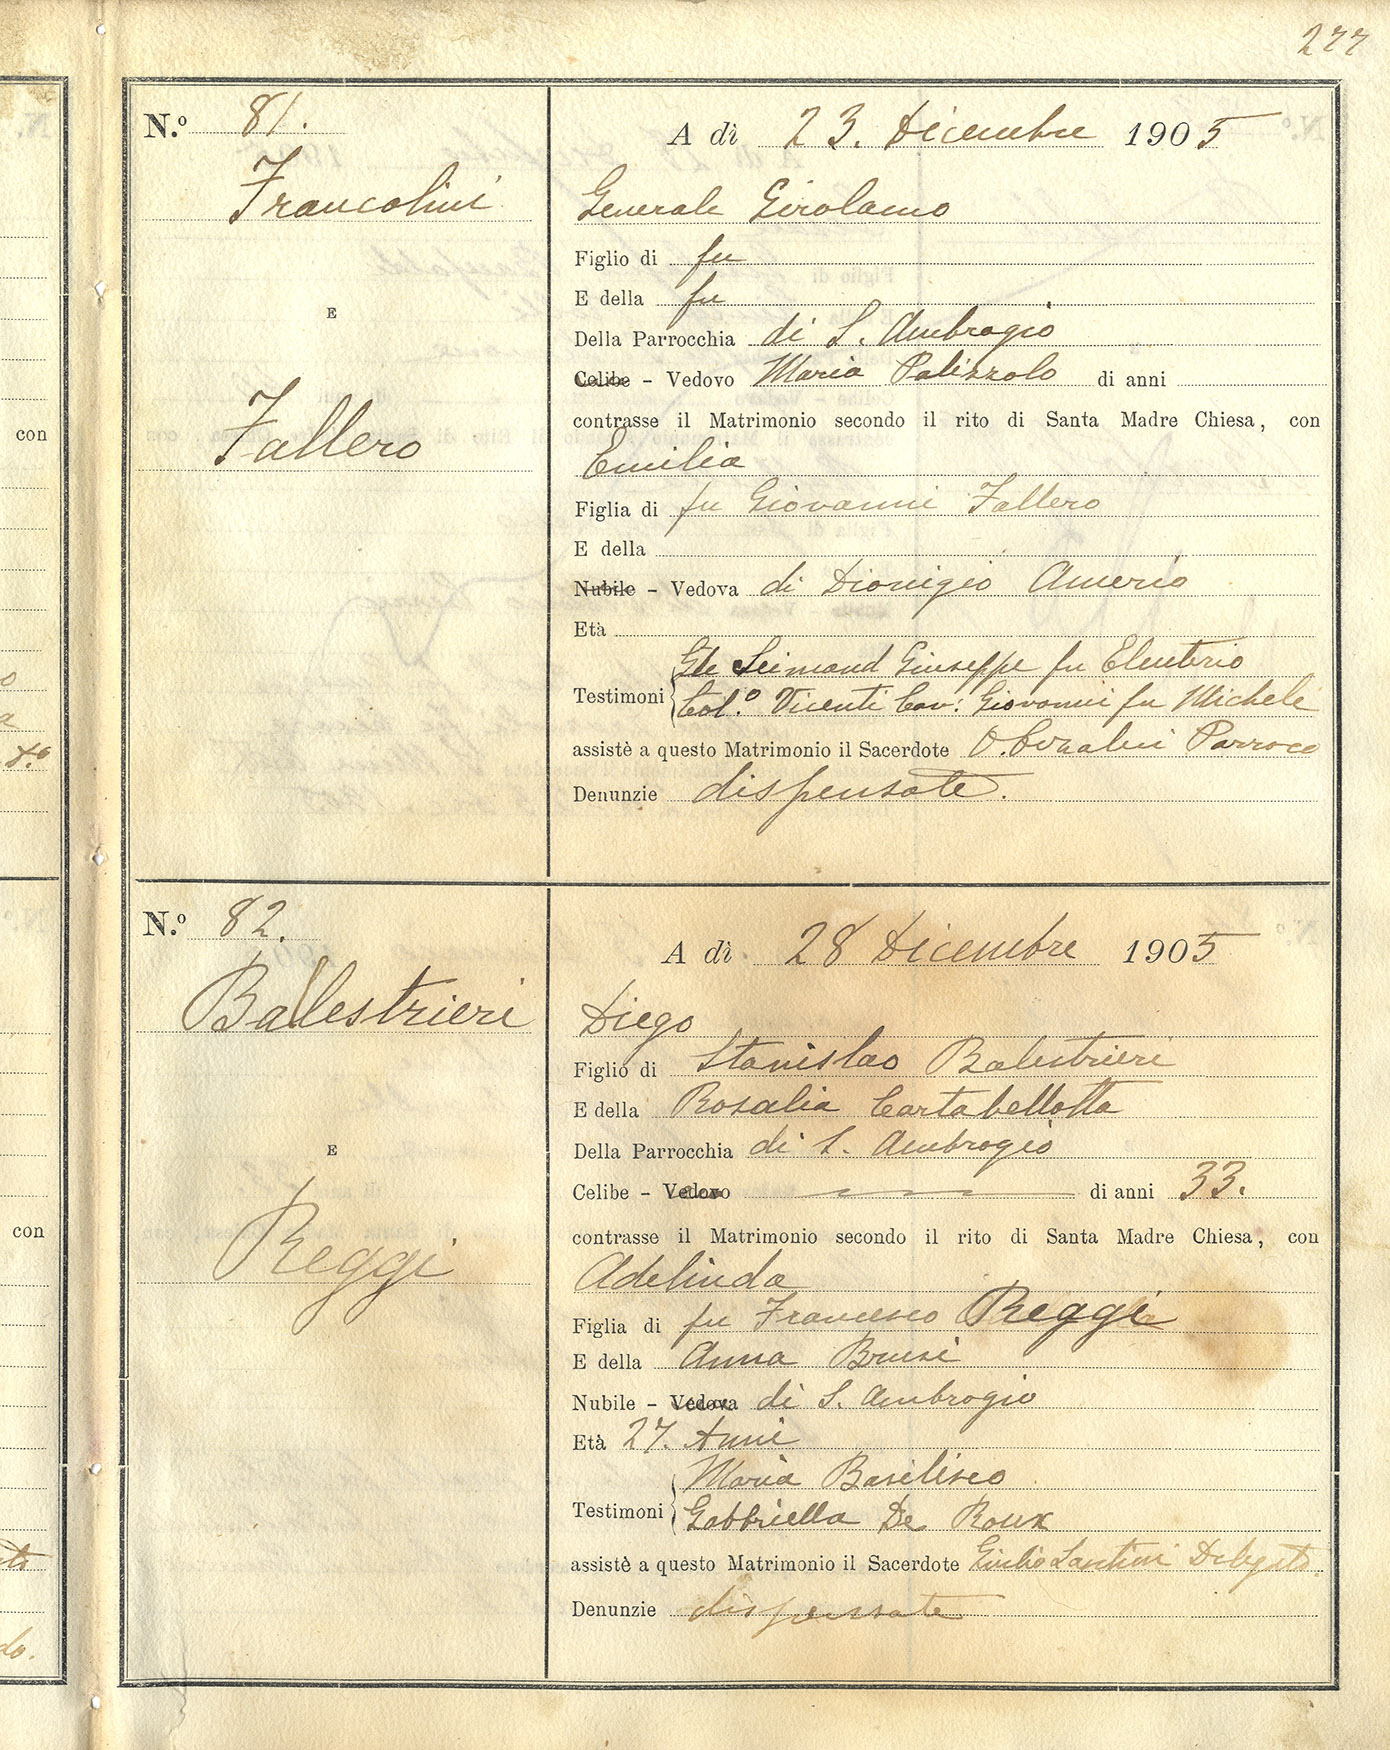 277
N.º 81.
Francolini
E
Fallero
A dì 23. Dicembre 1905
Generale Girolamo
Figlio di fu
E della fu
Della Parrocchia di S. Ambrogio
Celibe - Vedovo Maria Palizzolo di anni
contrasse il Matrimonio secondo il rito di Santa Madre Chiesa, con
Emilia
Figlia di fu Giovanni Fallero
E della
Nubile - Vedova di Dionigio Amerio
Età
Gle Seimand Giuseppe fu Eleuterio
Testimoni
Col.º Vicenti Cav: Giovanni fu Michele
assistè a questo Matrimonio il Sacerdote Parroco
Denunzie dispensate.
N.º 82.
Balestrieri
E
Reggi
A dì 28 Dicembre 1905
Diego
Figlio di Stanislao Balestrieri
E della Rosalia Cartabellotta
Della Parrocchia di S. Ambrogio
Celibe - Vedovo di anni 33.
contrasse il Matrimonio secondo il rito di Santa Madre Chiesa, con
Adelinda
Figlia di fu Francesco Reggi
E della Anna Brusi
Nubile - Vedova di S. Ambrogio
Età 27. Anni
Maria Basilisco
Testimoni
Gabbriella De Roux
assistè a questo Matrimonio il Sacerdote Giulio Santini Delegato
Denunzie dispensate
con
con